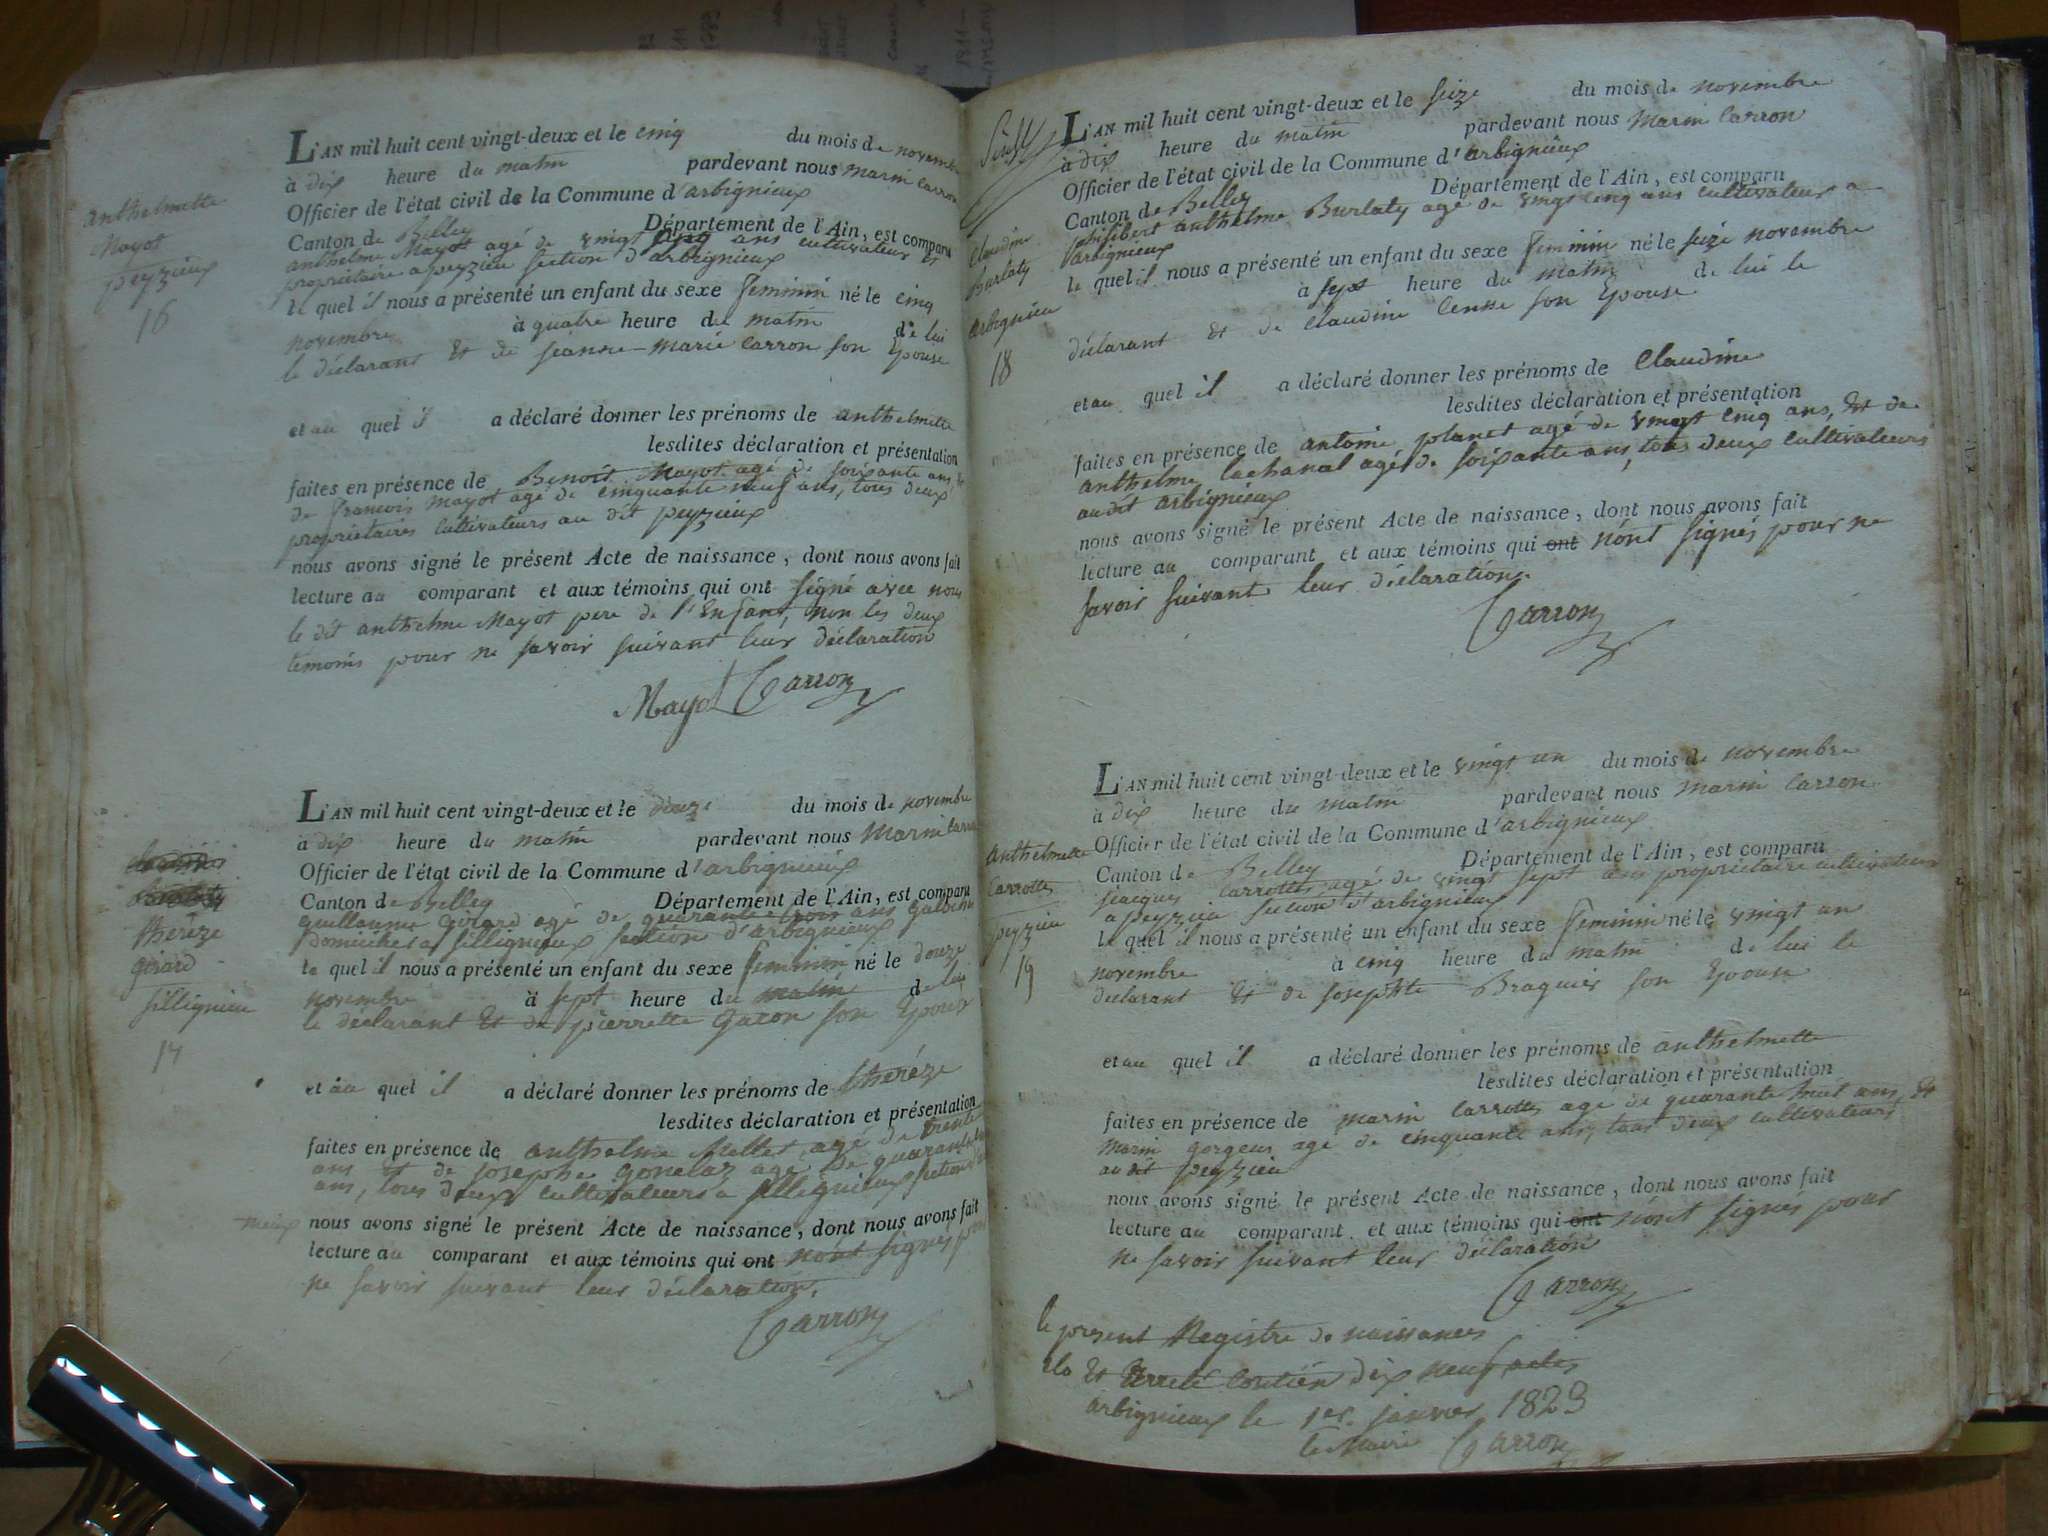 anthelmette
Mayot
peyzieux
16
L'AN mil huit cent vingt-deux et le cinq du mois de novembre
à dix heure du matin pardevant nous marin Carron
Officier de l'état civil de la Commune d'arbignieux
Canton de Belley Département de l'Ain, est comparu
anthelme Mayot agé de vingt cinq ans cultivateur et
propriétaire a peyzieu section d'arbignieux
le quel il nous a présenté un enfant du sexe feminin né le cinq
novembre à quatre heure du matin de lui
le déclarant et de jeanne-marie Carron son Epouse
et au quel il a déclaré donner les prénoms de anthelmette
lesdites déclaration et présentation
faites en présence de Benoit Mayot agé de soixante ans, et
de francois mayot agé de cinquante neuf ans, tous deux
propriétaires cultivateurs au dit peyzieux
nous avons signé le présent Acte de naissance, dont nous avons fait
lecture au comparant et aux témoins qui ont signé avec nous
le dit anthelme Mayot pere de l'Enfant, non les deux
temoins pour ne savoir suivant leur déclaration
Mayot Carron
thérèze
girard
sillignieu
17
L'AN mil huit cent vingt-deux et le douze du mois de novembre
à dix heure du matin pardevant nous Marin Carron
Officier de l'état civil de la Commune d'arbignieux
Canton de Belley Département de l'Ain, est comparu
guillaume girard agé de quarante trois ans
Domicilié a sillignieux section d'arbignieux
le quel il nous a présenté un enfant du sexe feminin né le douze
novembre à sept heure du matin de lui
le déclarant et de pierrette gacon son Epouse
et au quel il a déclaré donner les prénoms de thérèze
lesdites déclaration et présentation
faites en présence de anthelme Mellet agé de trente
ans et de josephe gonelaz agé de quarante
ans, tous deux cultivateurs a sillignieux section
nous avons signé le présent Acte de naissance, dont nous avons fait
lecture au comparant et aux témoins qui ont n'ont signés pour
ne savoir suivant leur déclaration.
Carron
Claudine
Burlaty
arbignieu
18
L'AN mil huit cent vingt-deux et le seize du mois de novembre
à dix heure du matin pardevant nous Marin Carron
Officier de l'état civil de la Commune d'arbignieux
Canton de Belley Département de l'Ain, est comparu
anthelme Burlaty agé de vingt cinq ans cultivateur a
arbignieux
le quel il nous a présenté un enfant du sexe feminin né le seize novembre
à sept heure du matin de lui le
déclarant et de Claudine son Epouse
et au quel il a déclaré donner les prénoms de Claudine
lesdites déclaration et présentation
faites en présence de antoine planet agé de vingt cinq ans, et de
anthelme Lachanal agé de soixante ans, tous deux cultivateurs
audit arbignieux
nous avons signé le présent Acte de naissance, dont nous avons fait
lecture au comparant et aux témoins qui ont n'ont signés pour ne
savoir suivant leur déclaration.
Carron
anthelmette
Carrottes
peyzieu
19
L'AN mil huit cent vingt-deux et le vingt un du mois de novembre
à dix heure du matin pardevant nous marin Carron
Officier de l'état civil de la Commune d'arbignieux
Canton de Belley Département de l'Ain, est comparu
jacques Carrottes agé de vingt sept ans propriétaire cultivateur
a peyzieu section d'arbignieux
le quel il nous a présenté un enfant du sexe feminin né le vingt un
novembre à cinq heure du matin de lui le
déclarant et de josephte Braguier son Epouse
et au quel il a déclaré donner les prénoms de anthelmette
lesdites déclaration et présentation
faites en présence de marin Carrottes agé de quarante huit ans et
marin gorgeus agé de cinquante ans, tous deux cultivateurs
au dit peyzieu
nous avons signé le présent Acte de naissance, dont nous avons fait
lecture au comparant et aux témoins qui ont n'ont signés pour
ne savoir suivant leur déclaration
Carron
le présent Registre de naissances
clo et arreté contien dix neuf actes
arbignieux le 1er janvier 1823
le Maire Carron